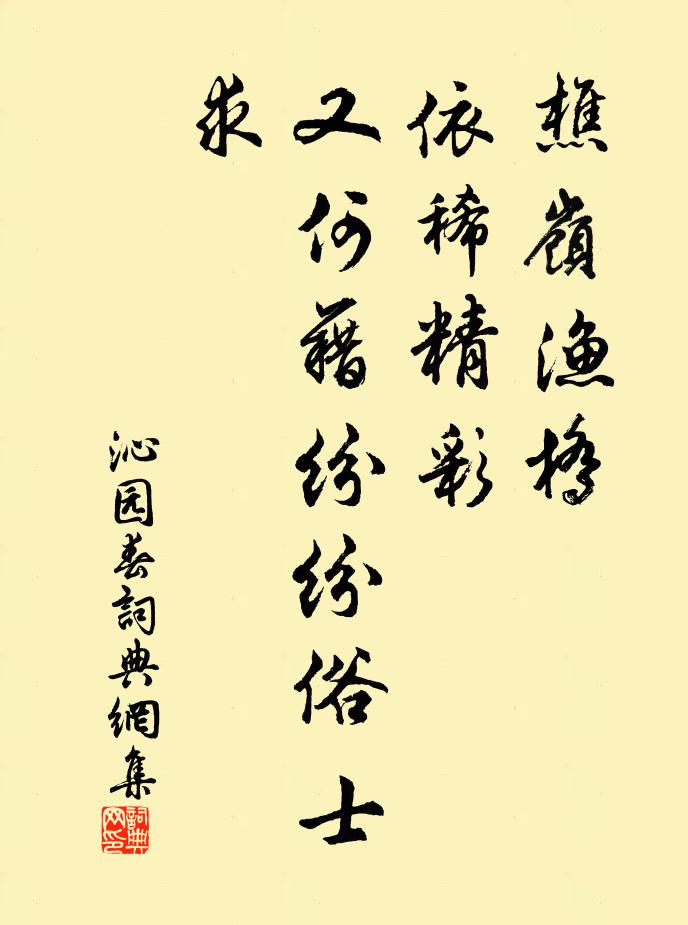 樵嶺漁橋
依稀精彩
又何藉紛紛俗士
求
沁园春詞典網集
詞典
网印